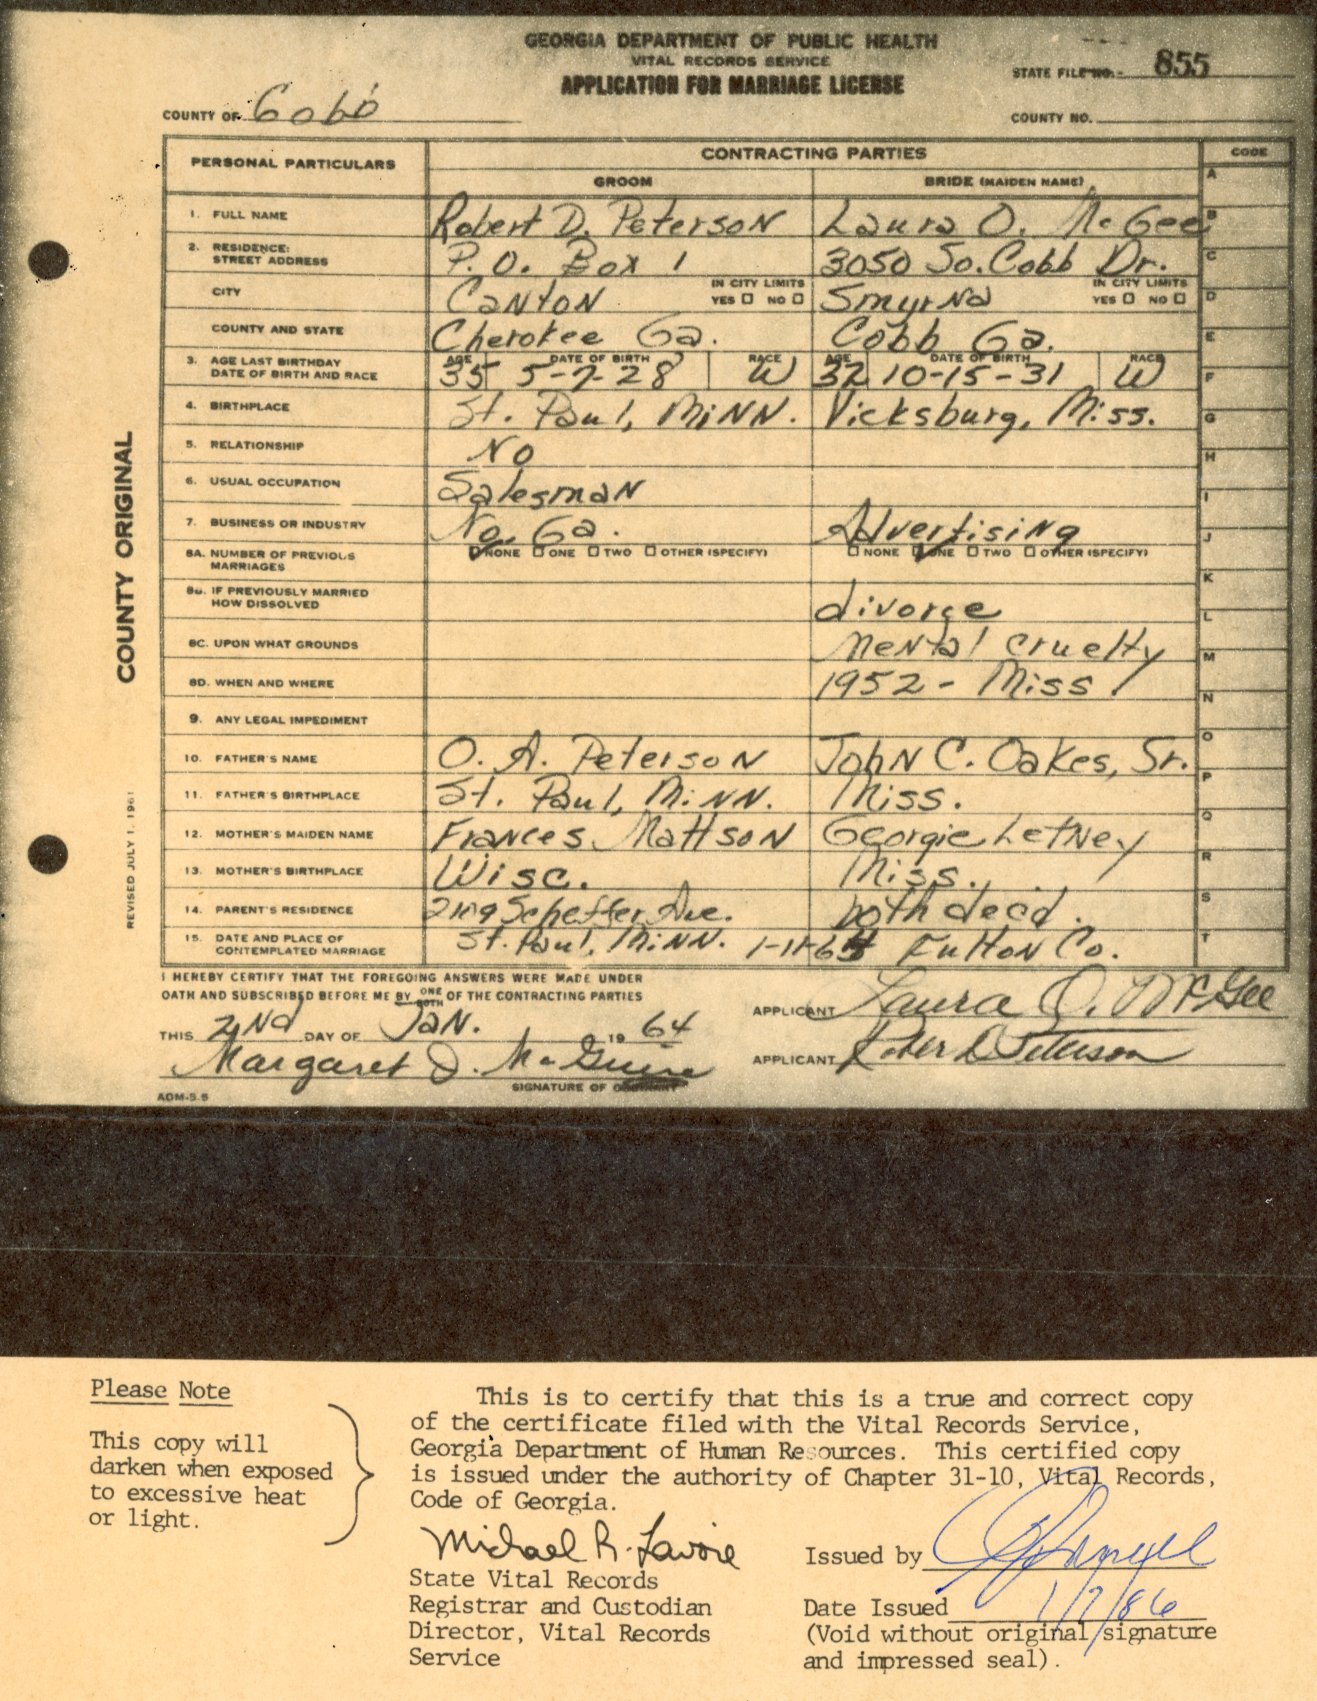 GEORGIA DEPARTMENT OF PUBLIC HEALTH
VITAL RECORDS SERVICE
APPLICATION FOR MARRIAGE LICENSE
STATE FILE NO. 855
COUNTY OF Cobb
COUNTY NO.
PERSONAL PARTICULARS CONTRACTING PARTIES CODE
GROOM BRIDE (MAIDEN NAME)
1. FULL NAME Robert D. Peterson Laura O. McGee
2. RESIDENCE: STREET ADDRESS P.O. Box 1 3050 So. Cobb Dr.
CITY Canton IN CITY LIMITS YES NO Smyrna IN CITY LIMITS YES NO
COUNTY AND STATE Cherokee Ga. Cobb Ga.
3. AGE LAST BIRTHDAY DATE OF BIRTH AND RACE AGE 35 DATE OF BIRTH 5-7-28 RACE W AGE 32 DATE OF BIRTH 10-15-31 RACE W
4. BIRTHPLACE St. Paul, Minn. Vicksburg, Miss.
5. RELATIONSHIP No
6. USUAL OCCUPATION Salesman
7. BUSINESS OR INDUSTRY No. Ga. Advertising
8A. NUMBER OF PREVIOUS MARRIAGES NONE ONE TWO OTHER (SPECIFY) NONE ONE TWO OTHER (SPECIFY)
8B. IF PREVIOUSLY MARRIED HOW DISSOLVED divorce
8C. UPON WHAT GROUNDS Mental cruelty
8D. WHEN AND WHERE 1952 - Miss
9. ANY LEGAL IMPEDIMENT
10. FATHER'S NAME O. A. Peterson John C. Oakes, Sr.
11. FATHER'S BIRTHPLACE St. Paul, Minn. Miss.
12. MOTHER'S MAIDEN NAME Frances Mattson Georgie Letney
13. MOTHER'S BIRTHPLACE Wisc. Miss.
14. PARENT'S RESIDENCE 2109 Scheffer Ave. both dead.
15. DATE AND PLACE OF CONTEMPLATED MARRIAGE St. Paul, Minn. 1-11-64 Fulton Co.
A
B
C
D
E
F
G
H
I
J
K
L
M
N
O
P
Q
R
S
T
COUNTY ORIGINAL
REVISED JULY 1, 1961
I HEREBY CERTIFY THAT THE FOREGOING ANSWERS WERE MADE UNDER
OATH AND SUBSCRIBED BEFORE ME BY ONE BOTH OF THE CONTRACTING PARTIES
APPLICANT Laura O. McGee
THIS 2nd DAY OF Jan. 19 64
APPLICANT Robert D Peterson
Margaret J. McGuire
SIGNATURE OF
ADM-5.5
Please Note
This copy will
darken when exposed
to excessive heat
or light.
This is to certify that this is a true and correct copy
of the certificate filed with the Vital Records Service,
Georgia Department of Human Resources. This certified copy
is issued under the authority of Chapter 31-10, Vital Records,
Code of Georgia.
Michael R. Lavoie
State Vital Records
Registrar and Custodian
Director, Vital Records
Service
Issued by
Date Issued 1/7/86
(Void without original signature
and impressed seal).